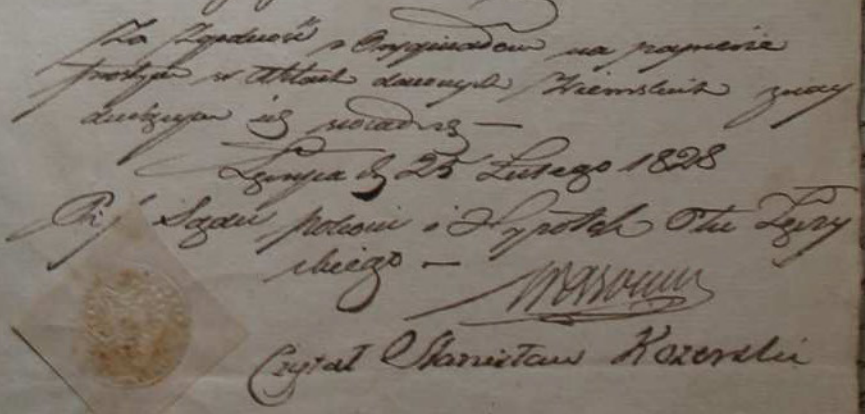 Za Zgodność z Oryginałem na papierze
prostym w Aktach dawnych Ziemskich znay
duiącym się
dnia 25 Lutego 1828
Sądu pokoiu i Hypotek Ptu Łęczy
ckiego —
Czytał Stanisław Kozerski